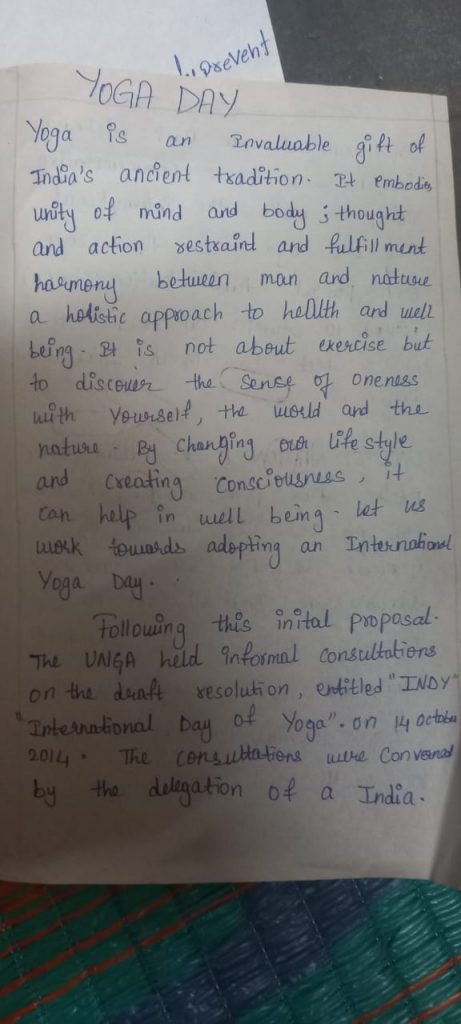 1.. prevent
YOGA DAY
Yoga is an Invaluable gift of
India's ancient tradition. It embodies
unity of mind and body ; thought
and action restraint and fulfill ment
harmony between man and nature
a holistic approach to health and well
being. It is not about exercise but
to discover the sense of oneness
with Yourself, the world and the
nature. By Changing our life style
and creating consciousness, it
can help in well being. let us
work towards adopting an International
Yoga Day.
Following this inital proposal.
The UNGA held informal consultations
on the draft resolution, entitled "INDY"
"International Day of Yoga". on 14 October
2014. The consultations were Convened
by the delegation of a India.